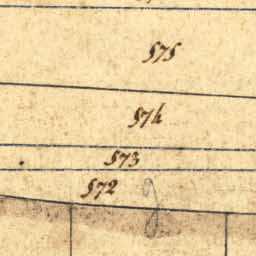 575
574
573
572
g